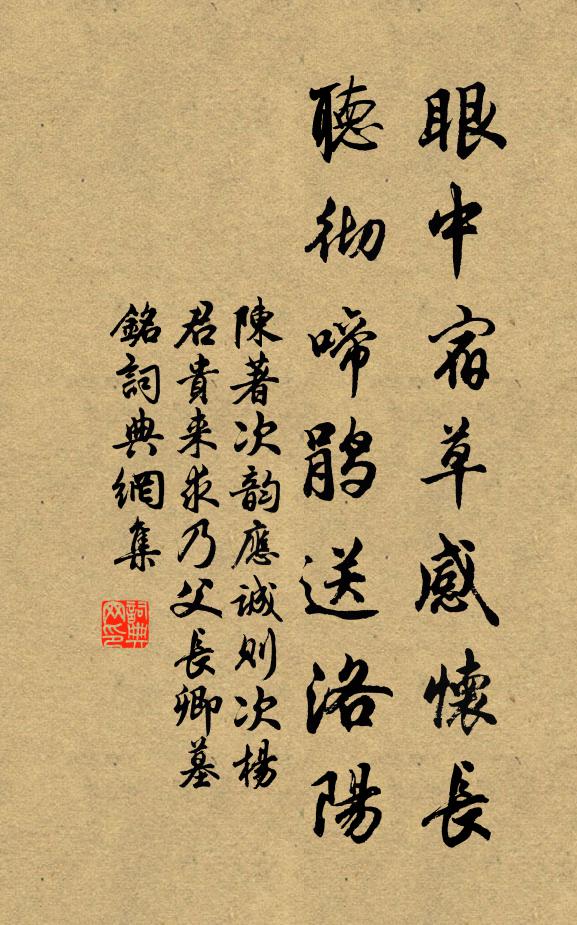 眼中宿草感懷長
聽彻啼鹃送洛陽
陳著次韵應誠則次楊
君貴来求乃父長卿墓
銘詞典網集
詞典
网印